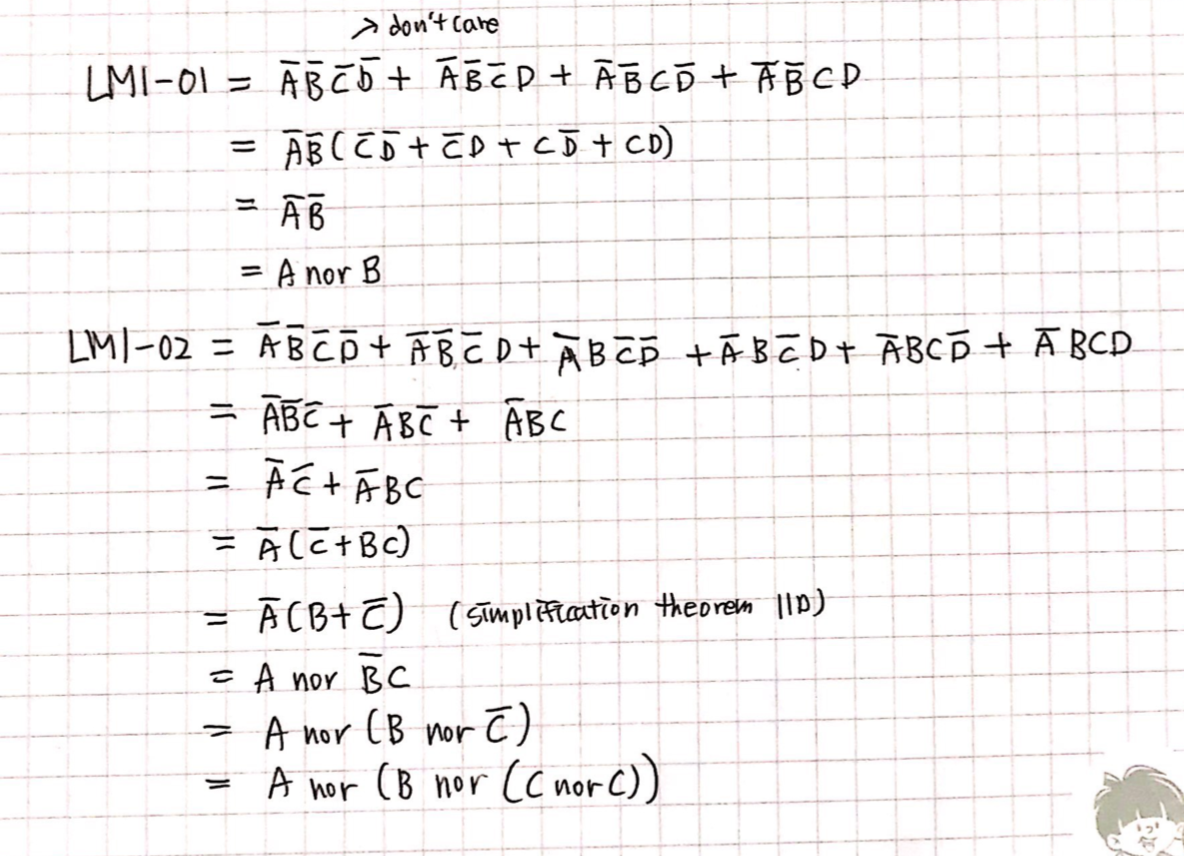 → don't care
LM1-01 = A̅B̅C̅D̅ + A̅B̅C̅D + A̅B̅CD̅ + A̅B̅CD
= A̅B̅(C̅D̅ + C̅D + CD̅ + CD)
= A̅B̅
= A nor B
LM1-02 = A̅B̅C̅D̅ + A̅B̅C̅D + A̅BC̅D̅ + A̅BC̅D + A̅BCD̅ + A̅BCD
= A̅B̅C̅ + A̅BC̅ + A̅BC
= A̅C̅ + A̅BC
= A̅(C̅+BC)
= A̅(B+C̅) (simplification theorem 11D)
= A nor B̅C
= A nor (B nor C̅)
= A nor (B nor (C nor C))